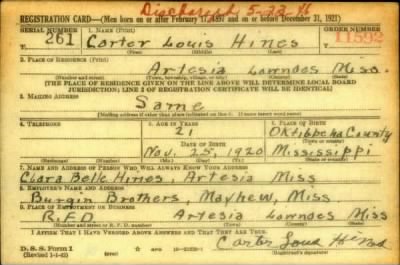 Discharged 5-22-46
REGISTRATION CARD—(Men born on or after February 17, 1897 and on or before December 31, 1921)
SERIAL NUMBER 1. NAME (Print) ORDER NUMBER
261 Carter Louis Hines 11592
(First) (Middle) (Last)
2. PLACE OF RESIDENCE (Print)
Artesia Lowndes Miss.
(Number and street) (Town, township, village, or city) (County) (State)
(THE PLACE OF RESIDENCE GIVEN ON THE LINE ABOVE WILL DETERMINE LOCAL BOARD
JURISDICTION; LINE 2 OF REGISTRATION CERTIFICATE WILL BE IDENTICAL)
3. MAILING ADDRESS
Same
(Mailing address if other than place indicated on line 2. If same insert word same)
4. TELEPHONE 5. AGE IN YEARS 6. PLACE OF BIRTH
21 Oktibbeha County
DATE OF BIRTH (Town or county)
Nov. 25, 1920 Mississippi
(Exchange) (Number) (Mo.) (Day) (Yr.) (State or country)
7. NAME AND ADDRESS OF PERSON WHO WILL ALWAYS KNOW YOUR ADDRESS
Clara Belle Hines, Artesia Miss
8. EMPLOYER'S NAME AND ADDRESS
Burgin Brothers, Mayhew, Miss
9. PLACE OF EMPLOYMENT OR BUSINESS
R.F.D Artesia Lowndes Miss
(Number and street or R. F. D. number) (Town) (County) (State)
I AFFIRM THAT I HAVE VERIFIED ABOVE ANSWERS AND THAT THEY ARE TRUE.
D. S. S. Form 1
(Revised 1-1-42) (over) Carter Louis Hines
(Registrant's signature)